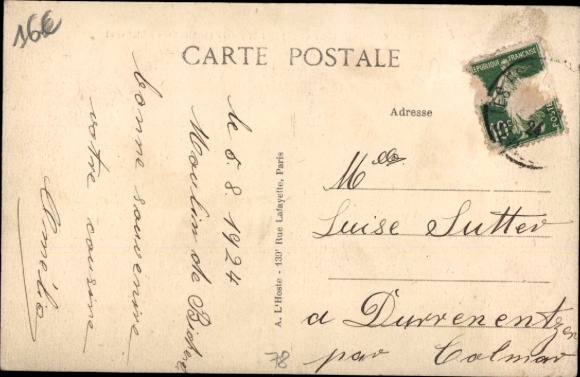 16€
CARTE POSTALE
REPUBLIQUE FRANÇAISE
POSTE
10c
Adresse
le 5.8.1924
Moulin de
bonne souvenire
votre cousine
Amélie
A. L'Hoste - 139 Rue Lafayette, Paris
Melle
Luise Sutter
a Durrenentzen
par Colmar
78